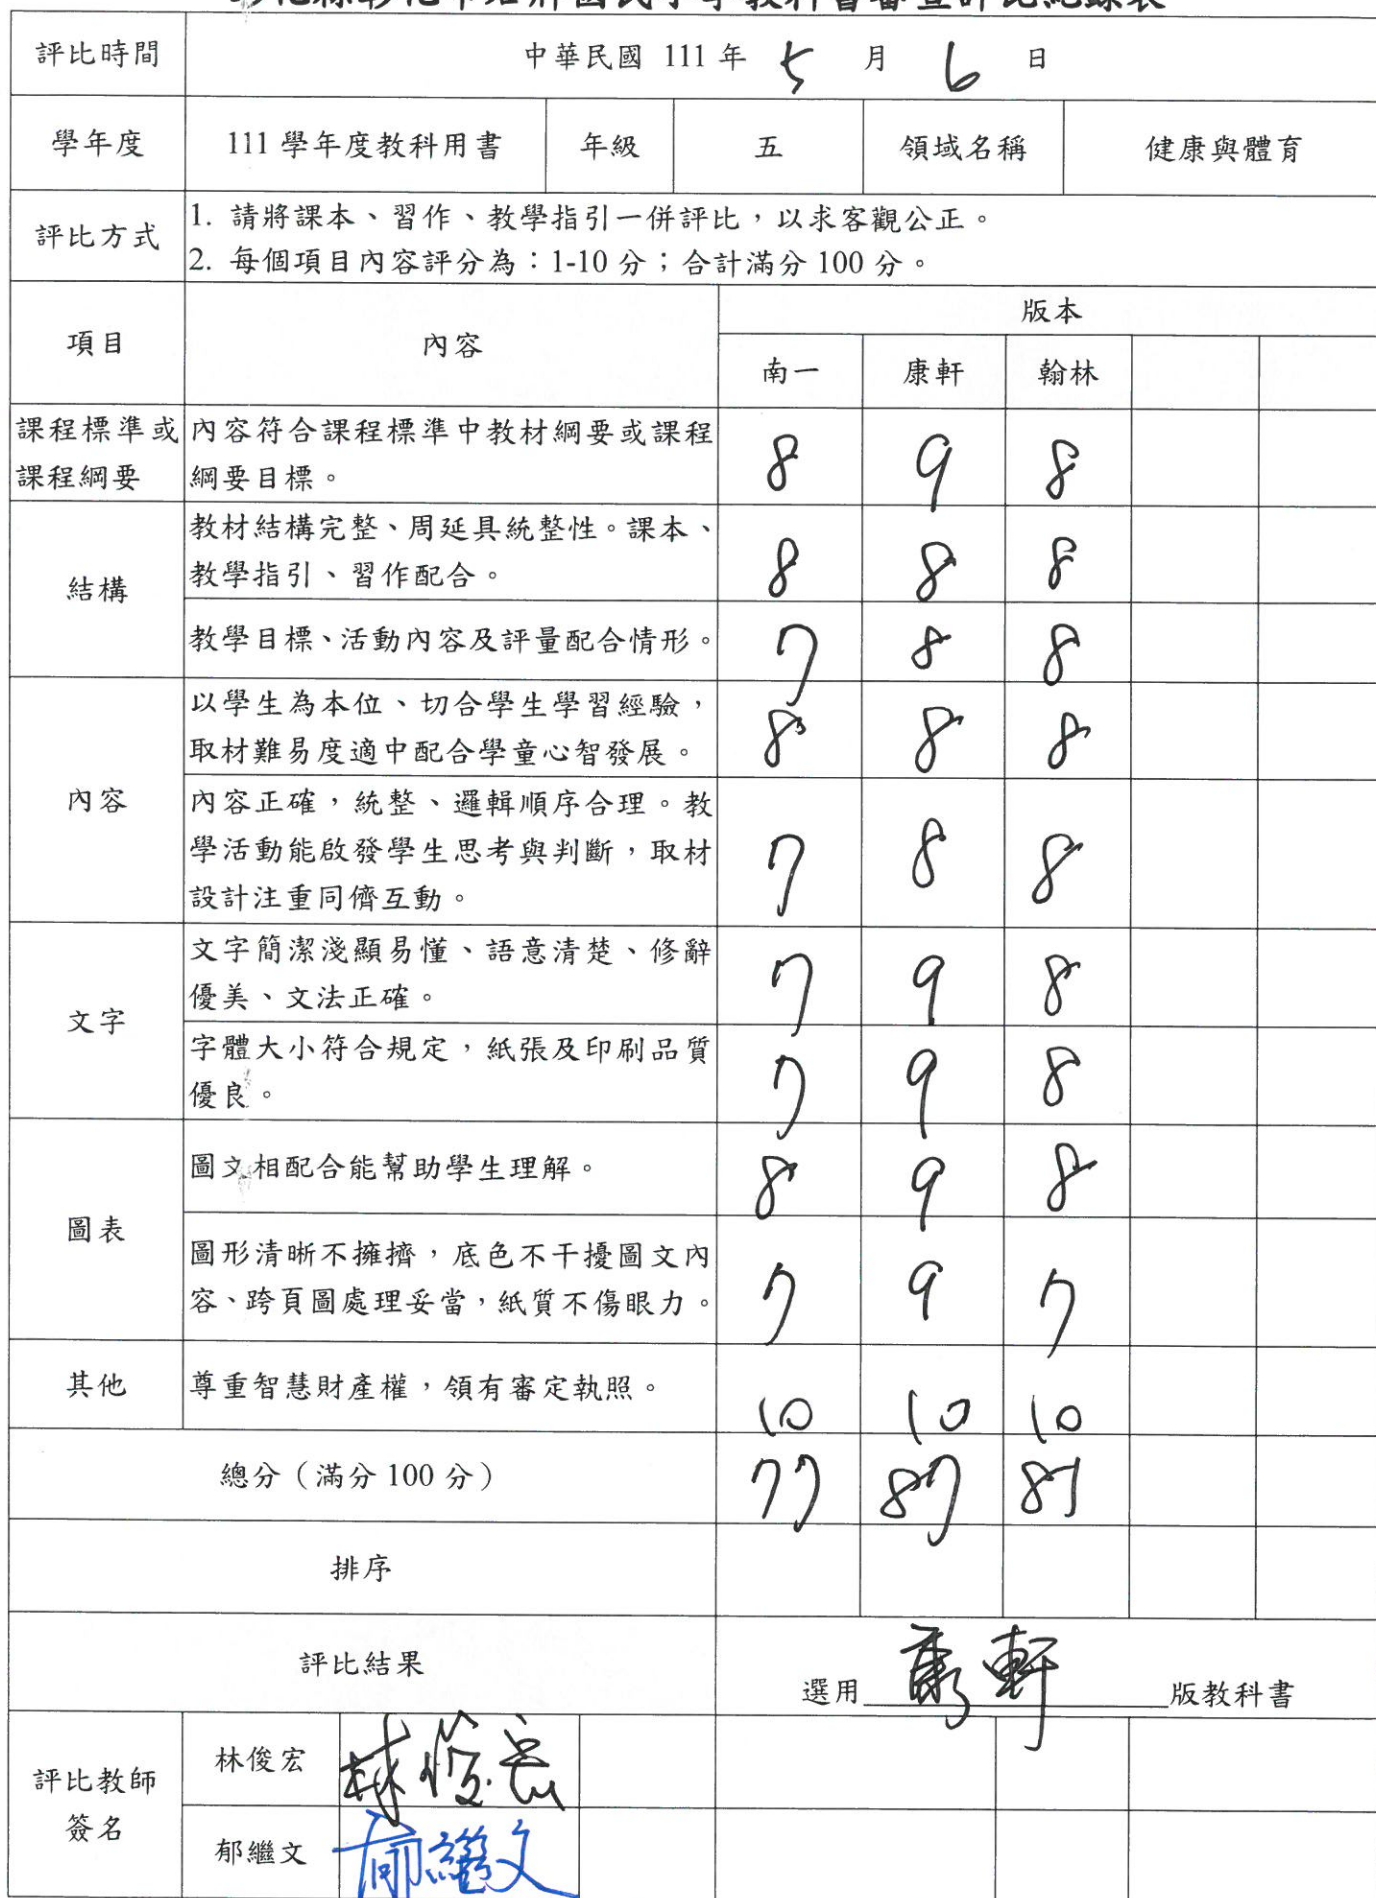 評比時間 中華民國 111 年 5 月 6 日
學年度 111 學年度教科用書 年級 五 領域名稱 健康與體育
評比方式
1. 請將課本、習作、教學指引一併評比，以求客觀公正。
2. 每個項目內容評分為：1-10 分；合計滿分 100 分。
項目 內容 版本
南一 康軒 翰林
課程標準或
課程綱要
內容符合課程標準中教材綱要或課程
綱要目標。
8 9 8
結構
教材結構完整、周延具統整性。課本、
教學指引、習作配合。
8 8 8
教學目標、活動內容及評量配合情形。
7 8 8
內容
以學生為本位、切合學生學習經驗，
取材難易度適中配合學童心智發展。
8 8 8
內容正確，統整、邏輯順序合理。教
學活動能啟發學生思考與判斷，取材
設計注重同儕互動。
7 8 8
文字
文字簡潔淺顯易懂、語意清楚、修辭
優美、文法正確。
7 9 8
字體大小符合規定，紙張及印刷品質
優良。
7 9 8
圖表
圖文相配合能幫助學生理解。
8 9 8
圖形清晰不擁擠，底色不干擾圖文內
容、跨頁圖處理妥當，紙質不傷眼力。
7 9 7
其他 尊重智慧財產權，領有審定執照。
10 10 10
總分（滿分 100 分）
77 87 81
排序
評比結果 選用 康軒 版教科書
評比教師
簽名
林俊宏 林俊宏
郁繼文 郁繼文